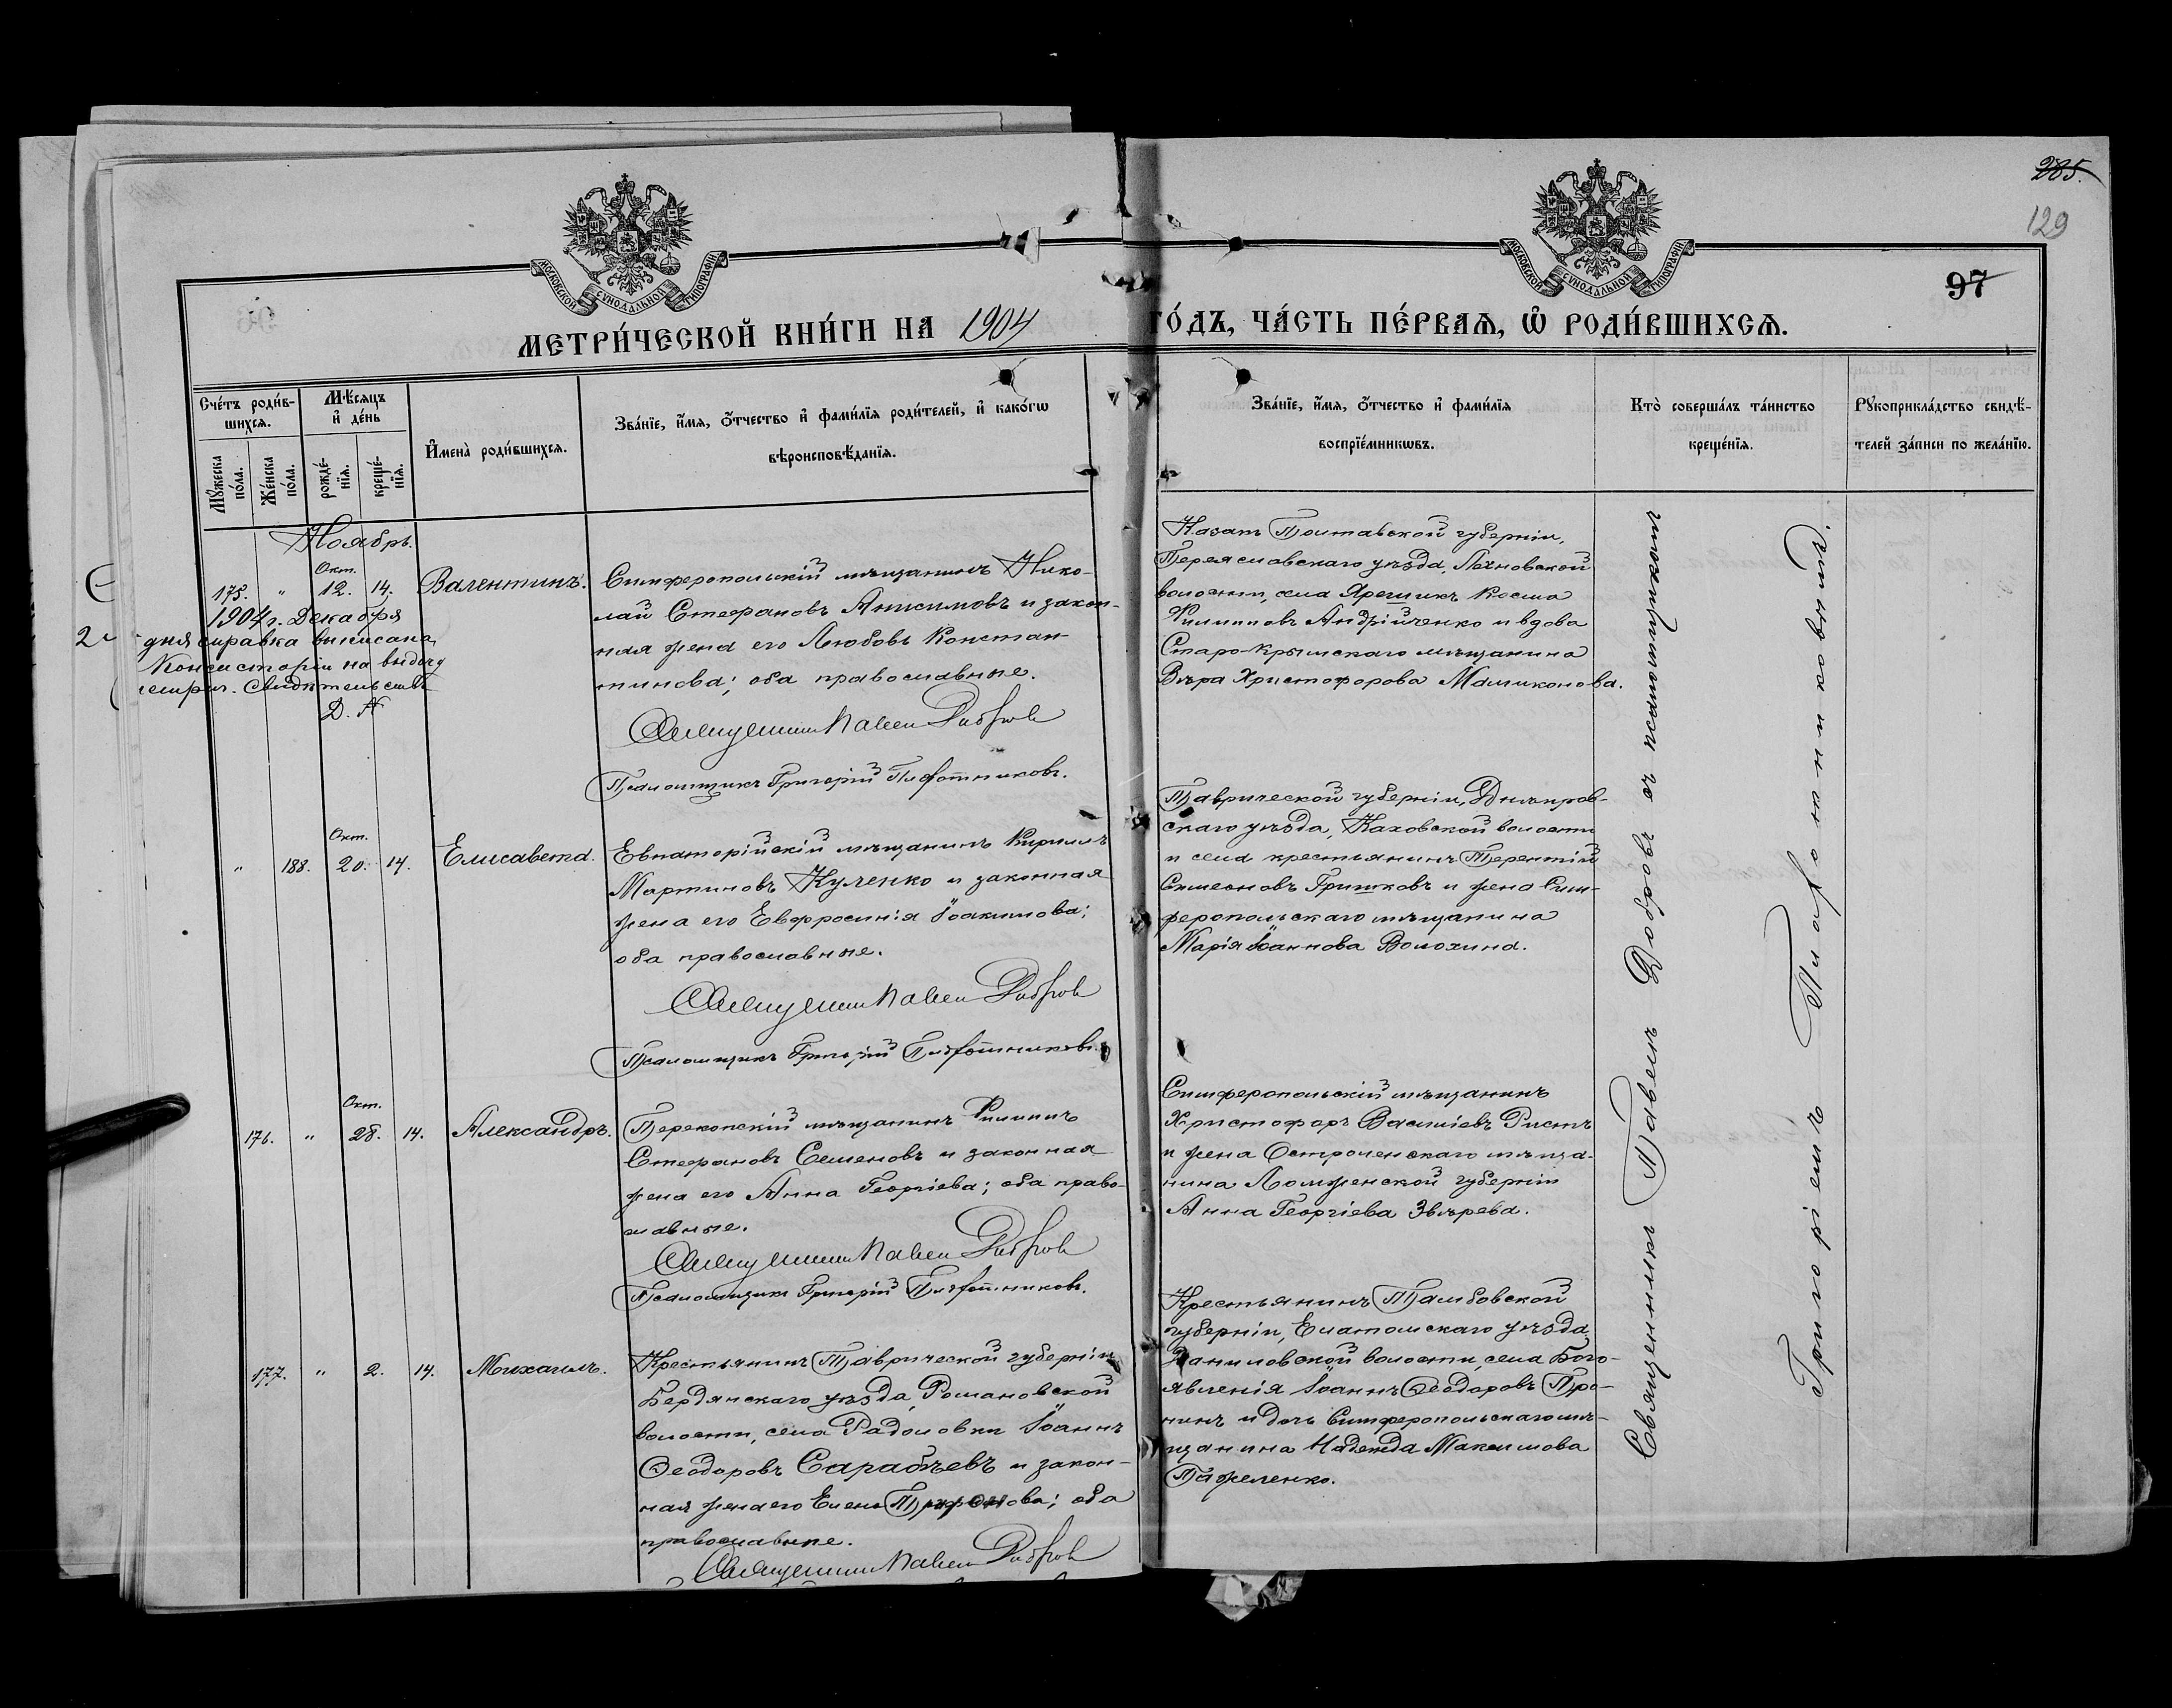 285.
129
97
МОСКОВСКОЙ СѴНОДАЛЬНОЙ ТИПОГРАФІИ
МОСКОВСКОЙ СѴНОДАЛЬНОЙ ТИПОГРАФІИ
МЕТРИ́ЧЕСКОЙ КНИ́ГИ НА 1904 ГО́ДЪ, ЧА́СТЬ ПЕ́РВАѦ, Ѡ҆ РОДИ́ВШИХСѦ.
Сче́тъ роди́в-
шихсѧ.
Мꙋ́жеска по́ла.
Же́нска по́ла.
Мѣ́сѧцъ и҆ де́нь
рожде́-нїѧ.
креще́-нїѧ.
И҆мена̀ роди́вшихсѧ.
Зва́нїе, и҆́мѧ, ѻ҆́тчество и҆ фами́лїѧ роди́телей, и҆ како́гѡ
вѣроисповѣ́данїѧ.
Зва́нїе, и҆́мѧ, ѻ҆́тчество и҆ фами́лїѧ
воспрїе́мникѡвъ.
Кто̀ соверша́лъ та́инство
креще́нїѧ.
Рꙋкоприкла́дство свидѣ́-
телей за́писи по жела́нїю.
Ноябрь.
175. " Окт. 12. 14. Валентинъ.
1904 г. Декабря
дня справка выписана
Консисторіи на выдачу
метрич. Свидѣтельств
Д. А
Симферопольскій мѣщанинъ Нико-
лай Стефановъ Анисимовъ и закон-
ная жена его Любовь Констан-
тинова; оба православные.
Священникъ Павелъ Добровъ
Псаломщикъ Григорій Плафотниковъ.
Казакъ Полтавской губерніи,
Переяславскаго уѣзда, Лехновской
волости, села Ярешикъ Косма
Филипповъ Андрійченко и вдова
Старо-Крымскаго мѣщанина
Вѣра Христофорова Мамиконова.
" 188. Окт. 20. 14. Елисавета.
Евпаторійскій мѣщанинъ Кириллъ
Мартиновъ Куленко и законная
жена его Евфросинія Іоакимова;
оба православные.
Священникъ Павелъ Добровъ
Псаломщикъ Григорій Плафотниковъ
Таврической губерніи, Днѣпров-
скаго уѣзда, Каховской волости
и села крестьянинъ Терентій
Симеоновъ Гришковъ и жена Сим-
феропольскаго мѣщанина
Марія Іоаннова Волохина.
176. " Окт. 28. 14. Александръ.
Перекопскій мѣщанинъ Филиппъ
Стефановъ Семеновъ и законная
жена его Анна Георгіева; оба право-
славные.
Священникъ Павелъ Добровъ
Псаломщикъ Григорій Плафотниковъ.
Симферопольскій мѣщанинъ
Христофоръ Василіевъ Ристъ
и жена Остроленскаго мѣща-
нина Ломженской губерніи
Анна Георгіева Звѣрева.
177. " 2. 14. Михаилъ.
Крестьянинъ Таврической губерніи
Бердянскаго уѣзда, Романовской
волости, села Радоловки Іоаннъ
Ѳеодоровъ Сарабѣевъ и закон-
ная жена его Елена Трифонова; оба
православные.
Священникъ Павелъ Добровъ
Крестьянинъ Тамбовской
губерніи, Елатомскаго уѣзда,
Даниловской волости, села Бого-
явленія Іоаннъ Ѳеодоровъ Про-
нинъ и дочь Симферопольскаго мѣ-
щанина Надежда Максимова
Пажеленко.
Священникъ Павелъ Добровъ съ псаломщикомъ
Григоріемъ Плафотниковымъ.